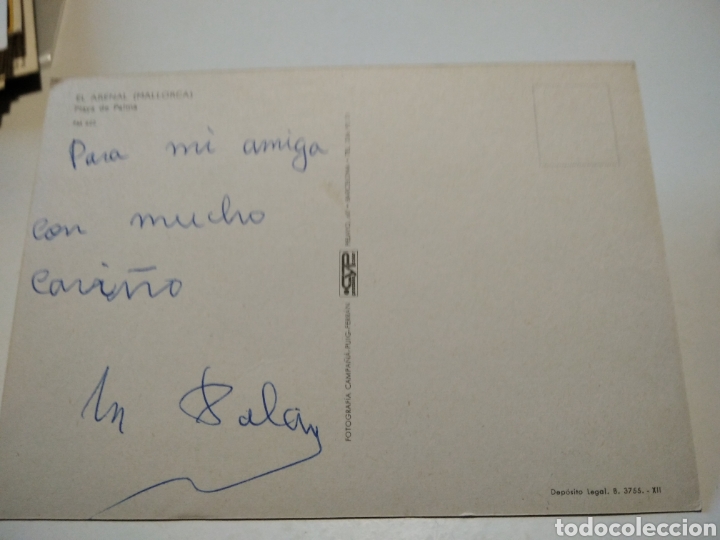 EL ARENAL (MALLORCA)
Playa de Palma
Para mi amiga
con mucho
cariño
FOTOGRAFIA CAMPAÑA-PUIG-FERRAN
CYP
BARCELONA
Depósito Legal. B. 3755. - XII
todocoleccion